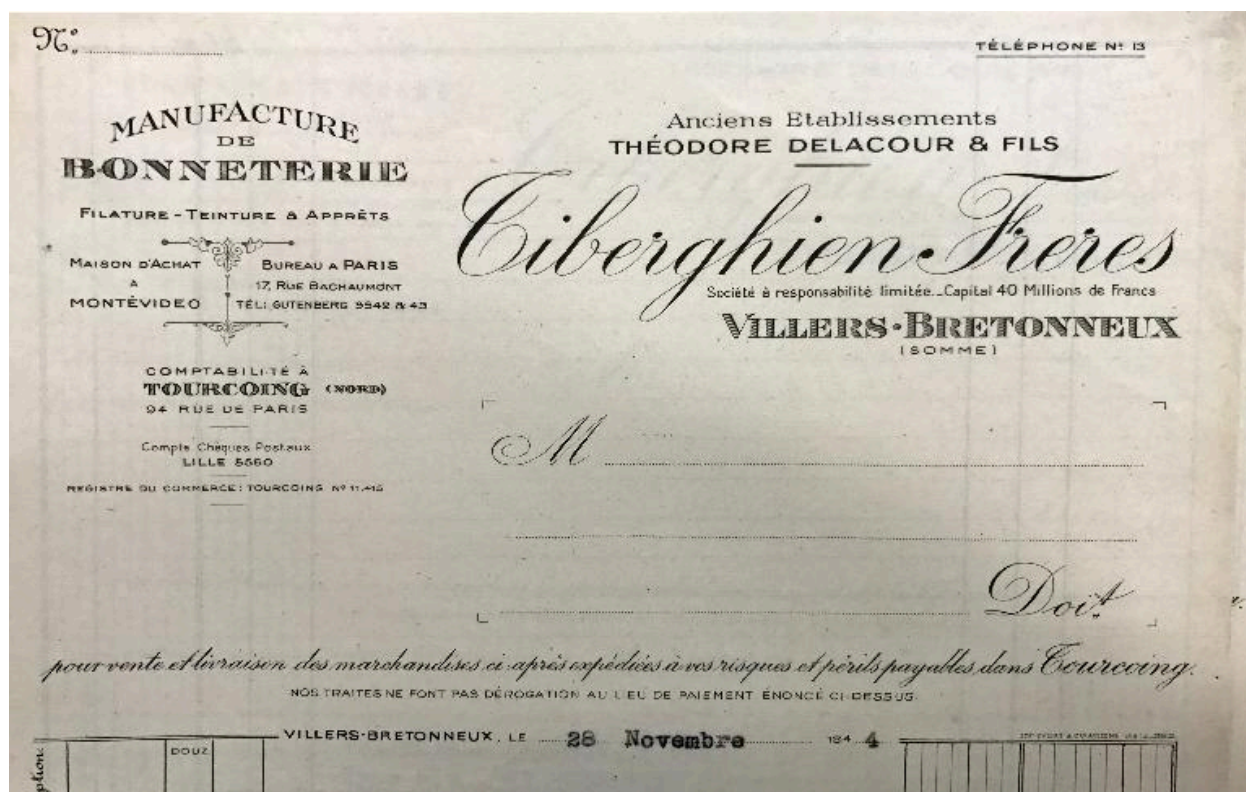 Nº
TÉLÉPHONE Nº 13
MANUFACTURE
DE
BONNETERIE
FILATURE - TEINTURE & APPRÊTS
MAISON D'ACHAT
A
MONTÉVIDEO
BUREAU A PARIS
17, RUE BACHAUMONT
TÉL: GUTENBERG 5542 & 43
COMPTABILITÉ À
TOURCOING (NORD)
94 RUE DE PARIS
Compte Chèques Postaux
LILLE 5560
REGISTRE DU COMMERCE: TOURCOING Nº 11.415
Anciens Etablissements
THÉODORE DELACOUR & FILS
Tiberghien Frères
Société à responsabilité limitée._Capital 40 Millions de Francs
VILLERS-BRETONNEUX
(SOMME)
M
Doit
pour vente et livraison des marchandises ci-après expédiées à vos risques et périls payables dans Tourcoing.
NOS TRAITES NE FONT PAS DÉROGATION AU LIEU DE PAIEMENT ÉNONCÉ CI-DESSUS.
VILLERS-BRETONNEUX, LE 28 Novembre 194 4
DOUZ